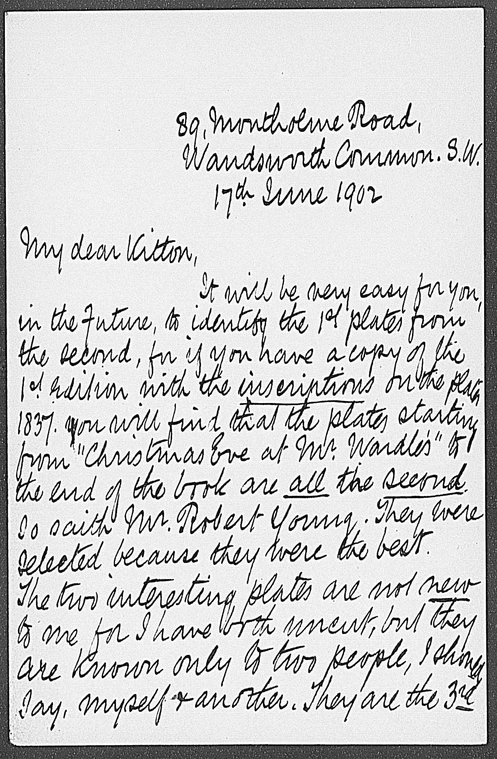 89, Montholme Road,
Wandsworth Common. S.W.
17th June 1902
My dear Kitton,
It will be very easy for you,
in the future, to identify the 1st plates from
the second, for if you have a copy of the
1st Edition with the inscriptions on the plates
1837. you will find that the plates starting
from "Christmas Eve at Mr. Wardle's" to
the end of the book are all the second.
So saith Mr. Robert Young. They were
selected because they were the best.
The two interesting plates are not new
to me for I have both uncut, but they
are known only to two people, I should
say, myself & another. They are the 3rd